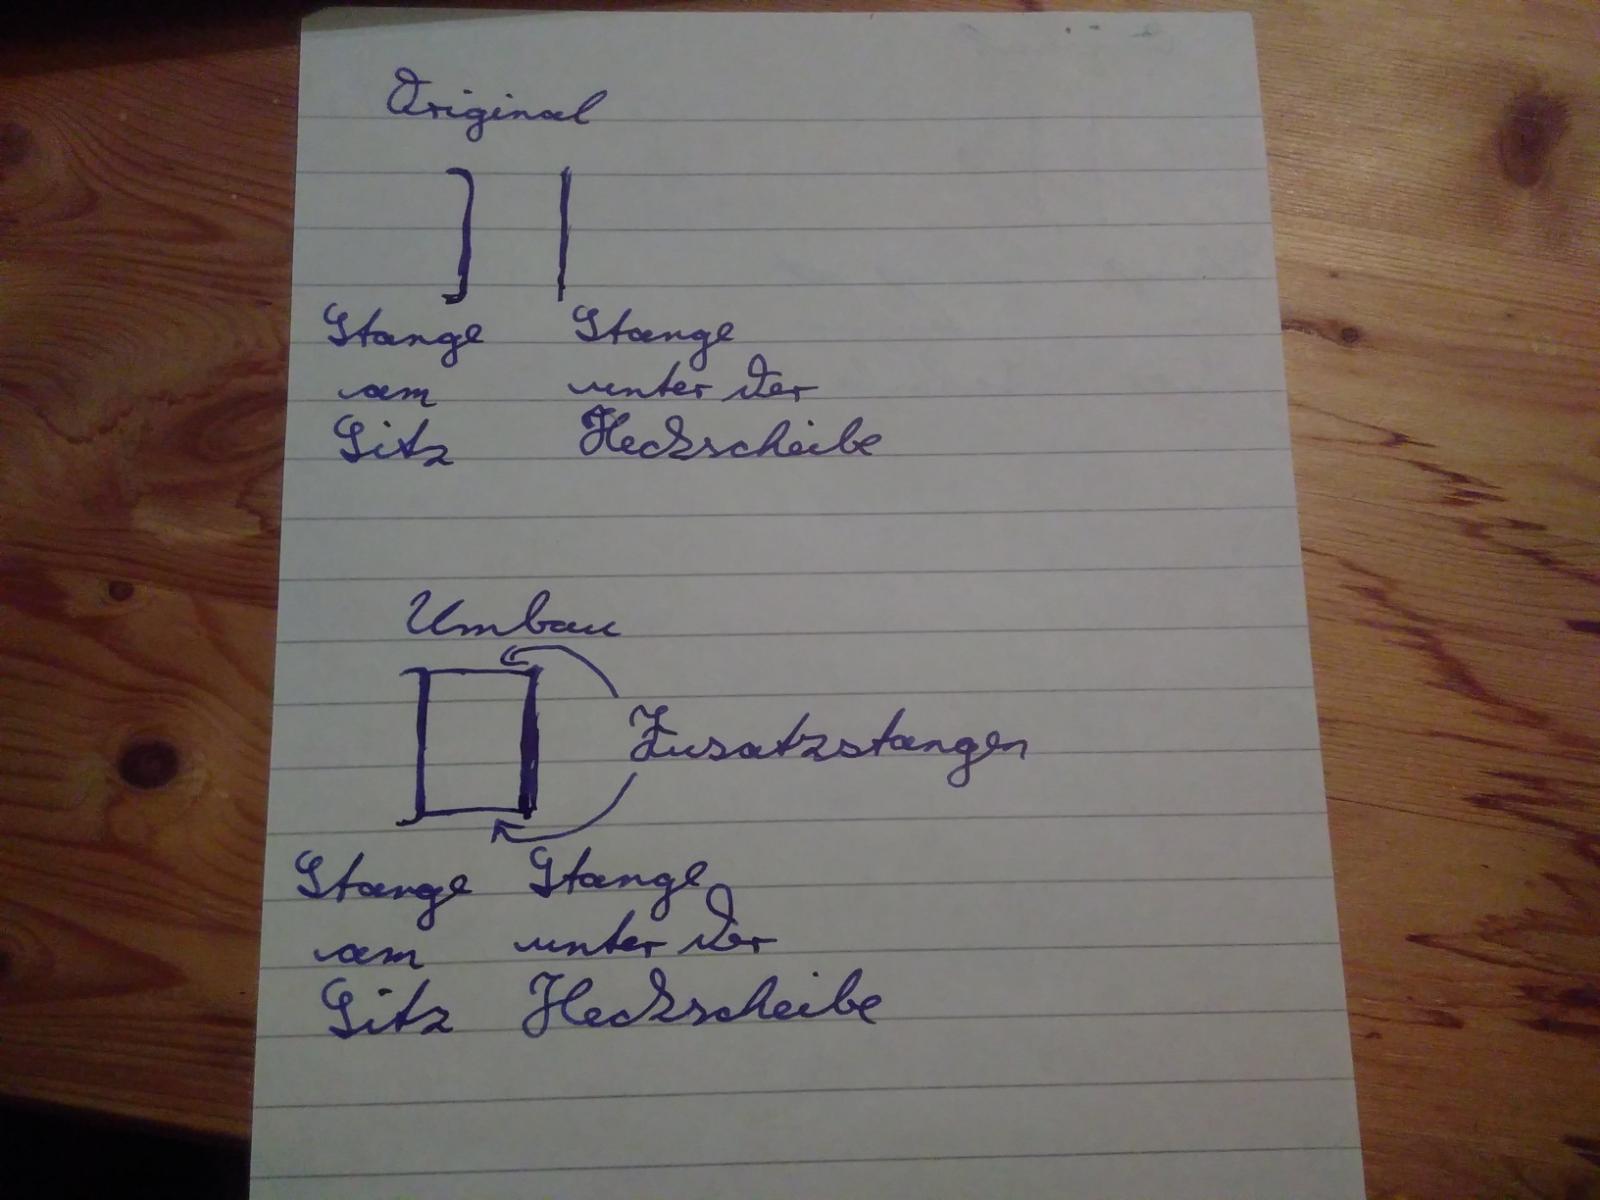 Original
Stange Stange
am unter der
Sitz Heckscheibe
Umbau
Zusatzstangen
Stange Stange
am unter der
Sitz Heckscheibe